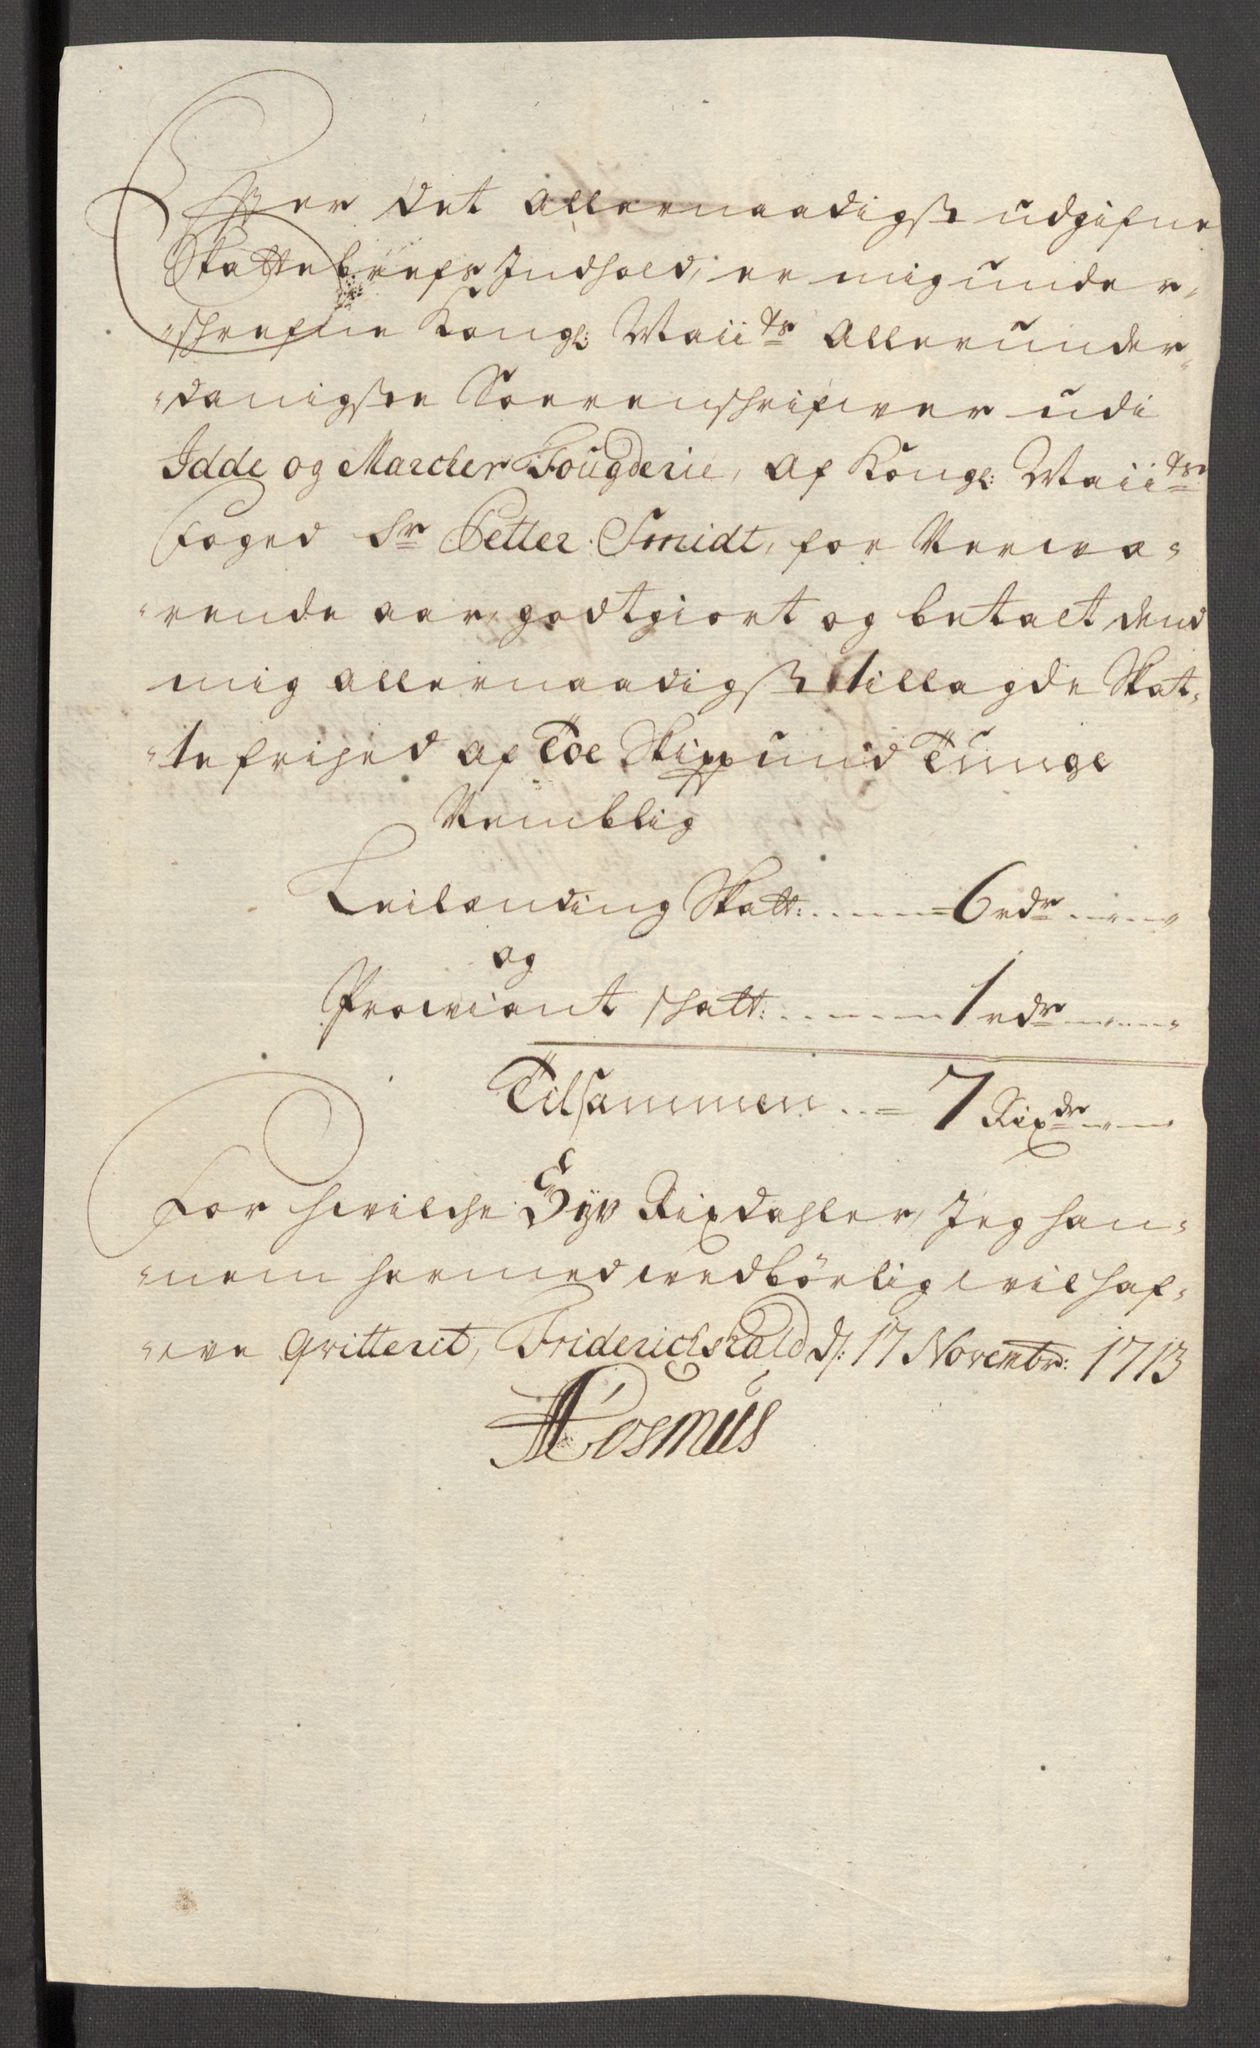 Effter det allernaadigste udgifne
Skattebrefs Indhold, er mig under-
-schrefne Kongl: Maiits Allerunder-
-danigste Soerenschrifwer udi
Idde og Marcker Fougderie, af Kongl: Maiits
Foged Sr Petter Smidt, for Nerwæ-
-rende aar, godtgiort og betalt dend
mig allernaadigst tillagde Skat-
-tefrihed af Toe Skippund Tunge
Nemblig
Leilænding Skatt: 6 rdr
og
Prowiant schatt: 1 rdr
Tilsammen 7 Rixdr
For hwilche Syv Rixdahler, Jeg han-
-nem hermed wedbörlig wil haf-
-we Qvitterit, Friderichshald d: 17 Novembr: 1713
Rosmus